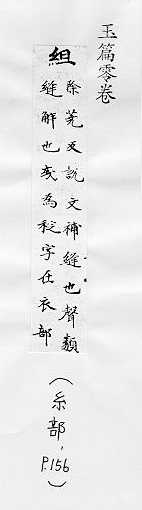 玉篇零卷
䋎
除莧反說文補縫也聲類
縫解也或為䘺字在衣部
(糸部, P.156)